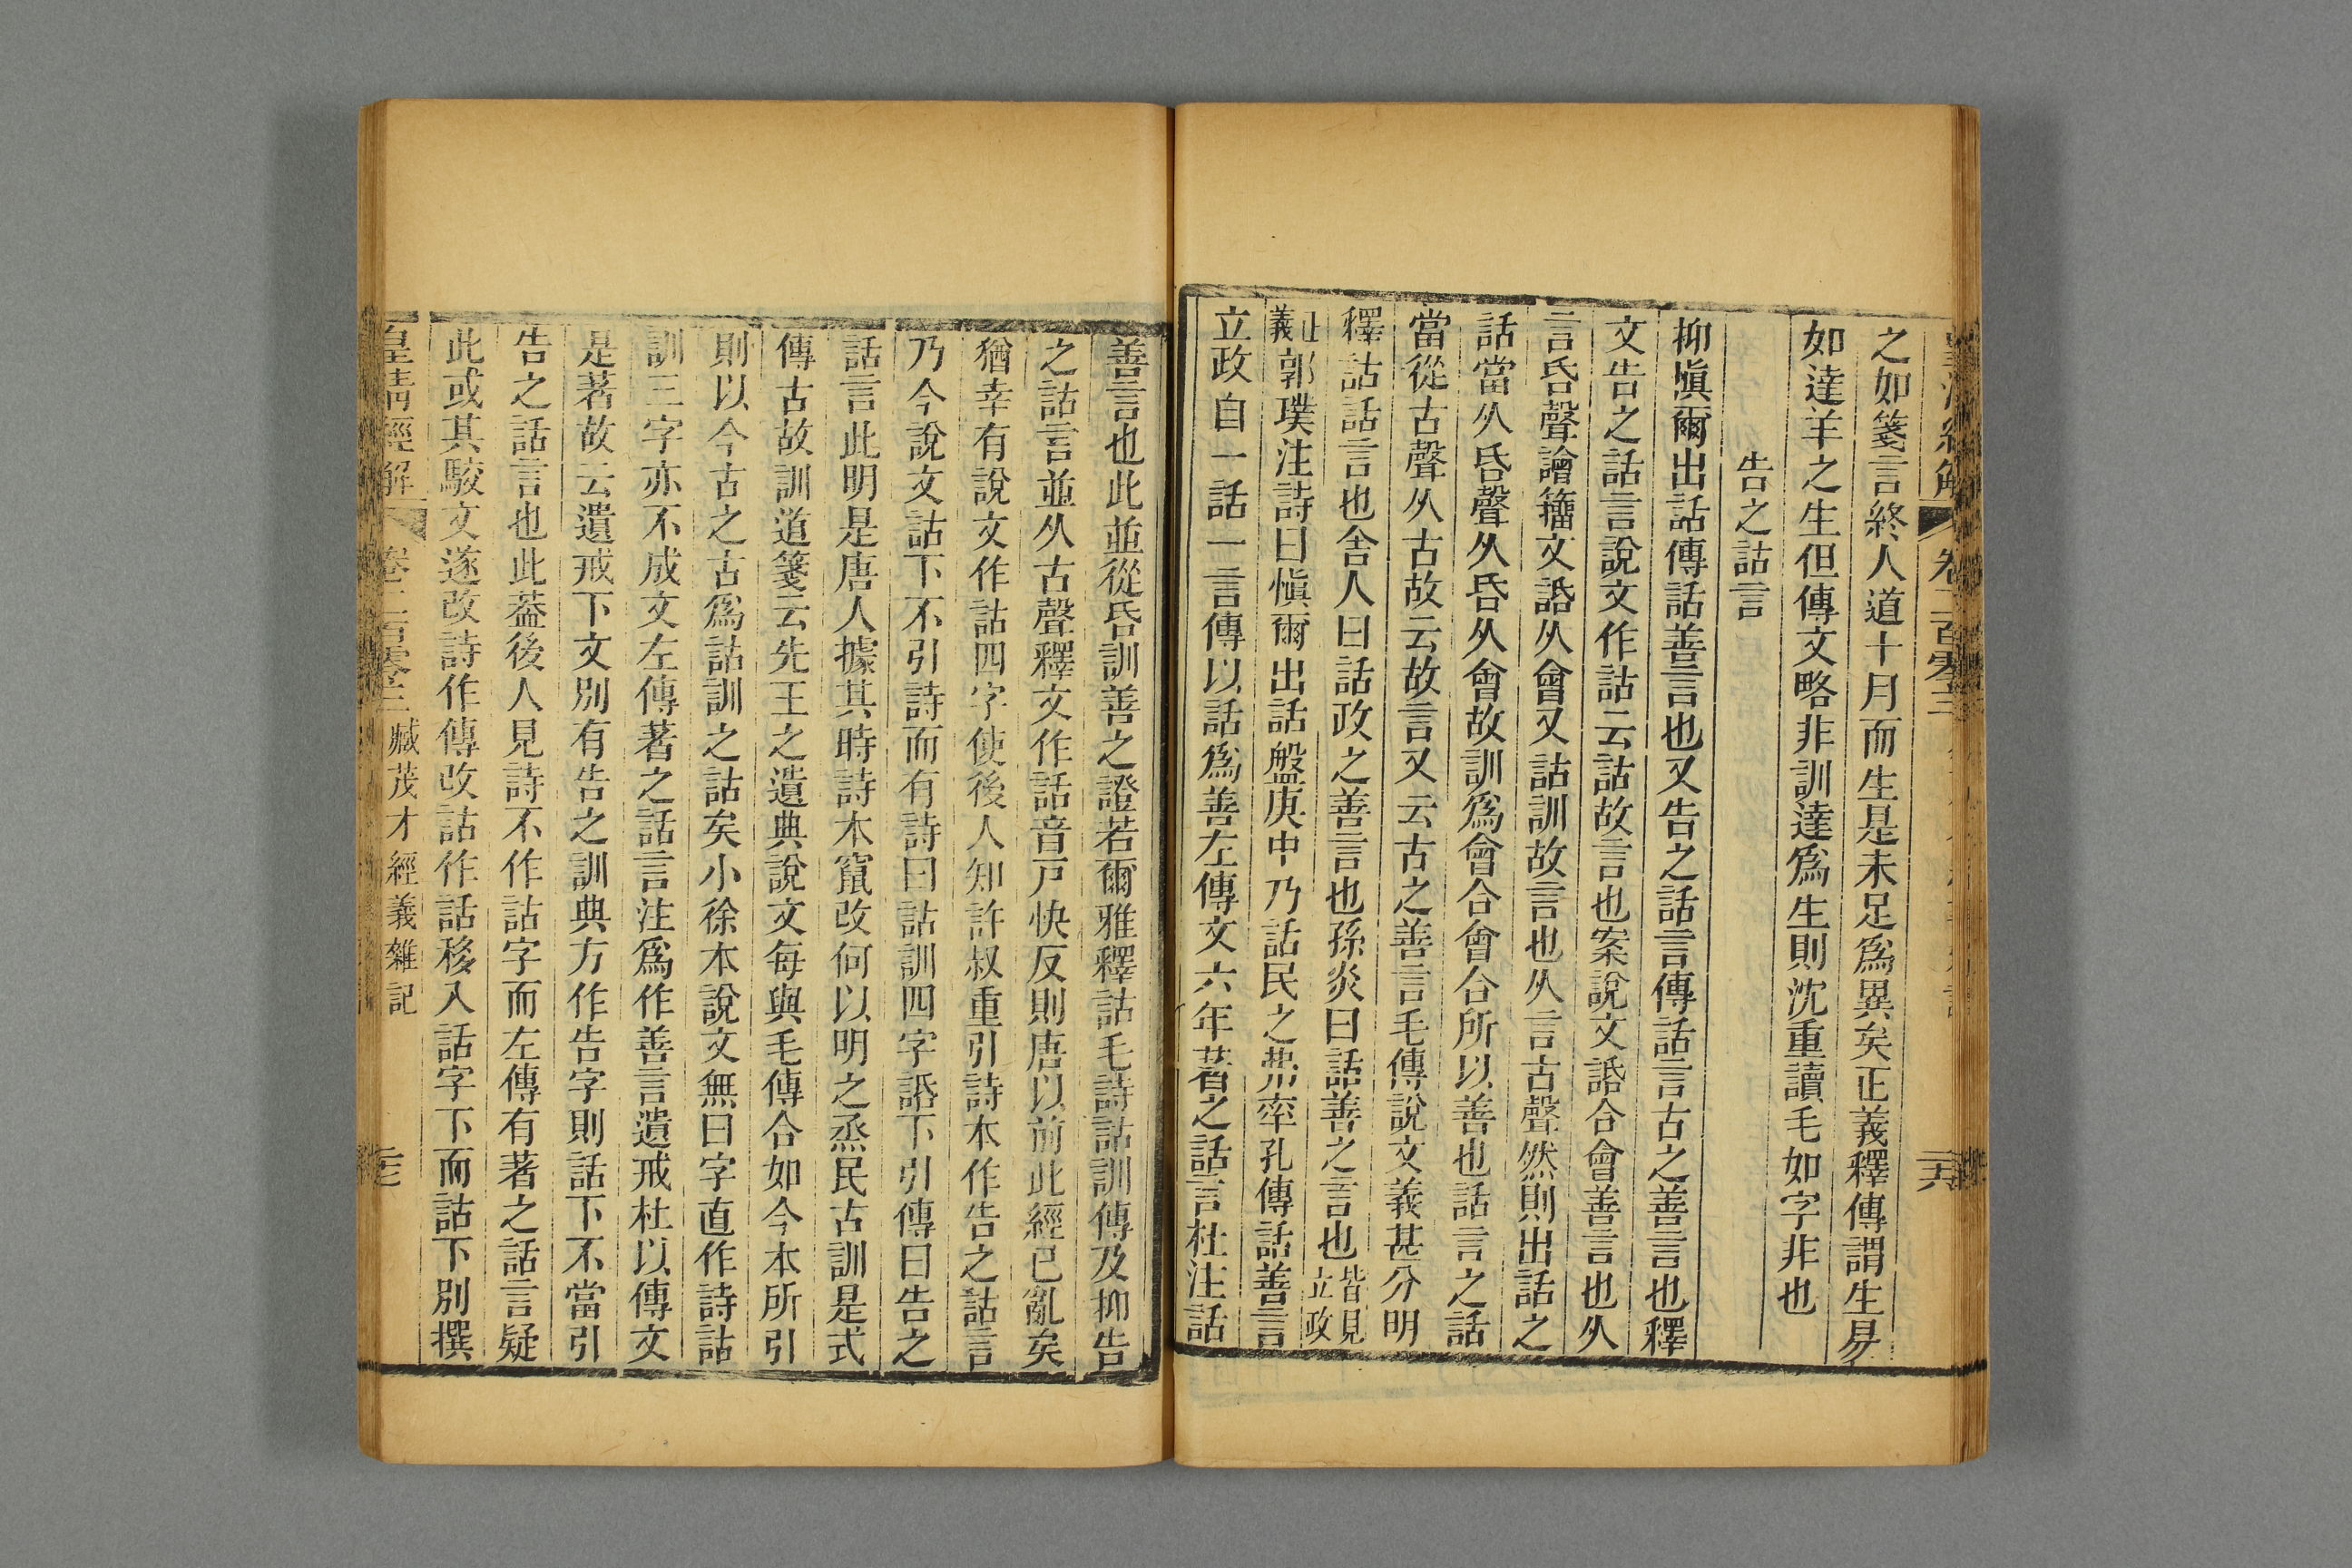 之如箋言終人道十月而生是未足爲異矣正義釋傳謂生易
如達羊之生但傳文略非訓達爲生則沈重讀毛如字非也
告之詁言
抑愼爾出話傳話善言也又告之話言傳話言古之善言也釋
文告之話言說文作詁云詁故言也案說文䛡合會善言也从
言𠯑聲譮籀文䛡从會又詁訓故言也从言古聲然則出話之
話當从𠯑聲从𠯑从會故訓爲會合會合所以善也話言之話
當從古聲从古故云故言又云古之善言毛傳說文義甚分明
釋詁話言也舍人曰話政之善言也孫炎曰話善之言也皆見立政
正義郭璞注詩曰愼爾出話盤庚中乃話民之弗率孔傳話善言
立政自一話一言傳以話爲善左傳文六年著之話言杜注話
皇淸經解 卷二百零三 二六
善言也此並從𠯑訓善之證若爾雅釋詁毛詩詁訓傳及抑告
之詁言並从古聲釋文作話音戸快反則唐以前此經已亂矣
猶幸有說文作詁四字使後人知許叔重引詩本作告之詁言
乃今說文詁下不引詩而有詩曰詁訓四字䛡下引傳曰告之
話言此明是唐人據其時詩本竄改何以明之烝民古訓是式
傳古故訓道箋云先王之遺典說文每與毛傳合如今本所引
則以今古之古爲詁訓之詁矣小徐本說文無曰字直作詩詁
訓三字亦不成文左傳著之話言注爲作善言遺戒杜以傳文
是著故云遺戒下文別有告之訓典方作告字則話下不當引
告之話言也此葢後人見詩不作詁字而左傳有著之話言疑
此或其駮文遂改詩作傳改詁作話移入話字下而詁下別撰
皇淸經解 卷二百零三 臧茂才經義雜記 二七